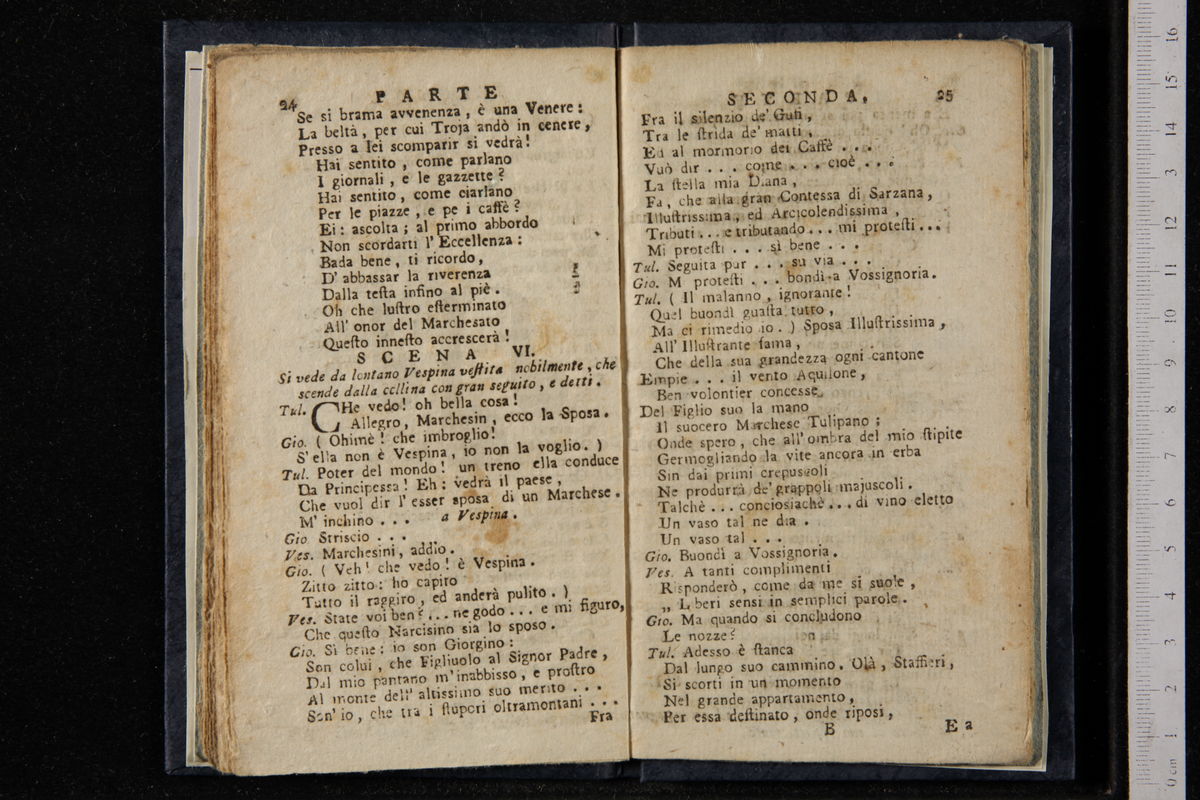 24 PARTE
Se si brama avvenenza, è una Venere:
La beltà, per cui Troja andò in cenere,
Presso a lei scomparir si vedrà!
Hai sentito, come parlano
I giornali, e le gazzette?
Hai sentito, come ciarlano
Per le piazze, e pe i caffè?
Ei: ascolta; al primo abbordo
Non scordarti l'Eccellenza:
Bada bene, ti ricordo,
D'abbassar la riverenza
Dalla testa infino al piè.
Oh che lustro esterminato
All'onor del Marchesato
Questo innesto accrescerà!
SCENA VI.
Si vede da lontano Vespina vestita nobilmente, che
scende dalla collina con gran seguito, e detti.
Tul. CHe vedo! oh bella cosa!
Allegro, Marchesin, ecco la Sposa.
Gio. (Ohimè! che imbroglio!
S'ella non è Vespina, io non la voglio.)
Tul. Poter del mondo! un treno ella conduce
Da Principessa! Eh: vedrà il paese,
Che vuol dir l'esser sposa di un Marchese.
M'inchino... a Vespina.
Gio Striscio...
Ves. Marchesini, addio.
Gio. (Veh! che vedo! è Vespina.
Zitto zitto: ho capito
Tutto il raggiro, ed anderà pulito.)
Ves. State voi ben?... ne godo... e mi figuro,
Che questo Narcisino sia lo sposo.
Gio. Sì bene: io son Giorgino:
Son colui, che Figliuolo al Signor Padre,
Dal mio pantano m'inabbisso, e prostro
Al monte dell'altissimo suo merito...
Son'io, che tra i stupori oltramontani...
Fra
SECONDA. 25
Fra il silenzio de' Gufi,
Tra le strida de' matti,
Ed al mormorio dei Caffè...
Vuò dir... come... cioè...
La stella mia Diana,
Fa, che alla gran Contessa di Sarzana,
Illustrissima, ed Arcicolendissima,
Tributi... e tributando... mi protesti...
Mi protesti... sì bene...
Tul. Seguita pur... su via...
Gio. M protesti... bondì a Vossignoria.
Tul. (Il malanno, ignorante!
Quel buondì guasta tutto,
Ma ci rimedio io.) Sposa Illustrissima,
All'Illustrante fama,
Che della sua grandezza ogni cantone
Empie... il vento Aquilone,
Ben volontier concesse
Del Figlio suo la mano
Il suocero Marchese Tulipano;
Onde spero, che all'ombra del mio stipite
Germogliando la vite ancora in erba
Sin dai primi crepuscoli
Ne produrrà de' grappoli majuscoli.
Talchè... conciosiachè... di vino eletto
Un vaso tal ne dia.
Un vaso tal...
Gio. Buondì a Vossignoria.
Ves. A tanti complimenti
Risponderò, come da me si suole,
„ L beri sensi in semplici parole.
Gio. Ma quando si concludono
Le nozze?
Tul. Adesso è stanca
Dal lungo suo cammino. Olà, Staffieri,
Si scorti in un momento
Nel grande appartamento,
Per essa destinato, onde riposi,
B E a